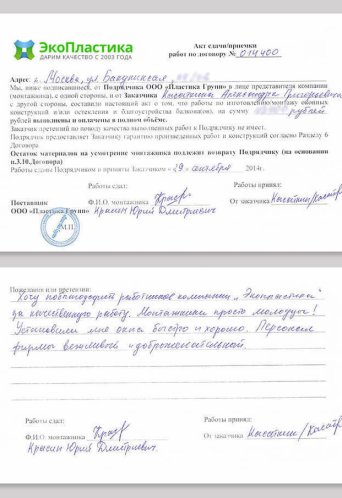 ЭкоПластика
ДАРИМ КАЧЕСТВО С 2003 ГОДА
Акт сдачи/приемки
работ по договору № 014400
Адрес: г. Москва, ул. Бакунинская,
Мы, ниже подписавшиеся, от Подрядчика ООО «Пластика Групп» в лице представителя компании
(монтажника), с одной стороны, и от Заказчика Александра Григорьевича
с другой стороны, составили настоящий акт о том, что работы по изготовлению/монтажу оконных
конструкций и/или остекления и благоустройства балкона(ов), на сумму рублей
рублей выполнены и оплачены в полном объёме.
Заказчик претензий по поводу качества выполненных работ к Подрядчику не имеет.
Подрядчик предоставляет Заказчику гарантию произведенных работ и конструкций согласно Разделу 6
Договора
Остаток материалов на усмотрение монтажника подлежит возврату Подрядчику (на основании
п.3.10.Договора)
Работы сданы Подрядчиком и приняты Заказчиком «29» сентября 2014г.
Работы сдал: Работы принял:
Поставщик Ф.И.О. монтажника От заказчика
ООО «Пластика Групп» Крысин Юрий Дмитриевич
М.П.
Пожелания или претензии:
Хочу поблагодарить работников компании „Экопластика“
за качественную работу. Монтажники просто молодцы!
Установили мне окна быстро и хорошо. Персонал
фирмы вежливый и доброжелательный.
Работы сдал: Работы принял:
Ф.И.О. монтажника От заказчика
Крысин Юрий Дмитриевич.